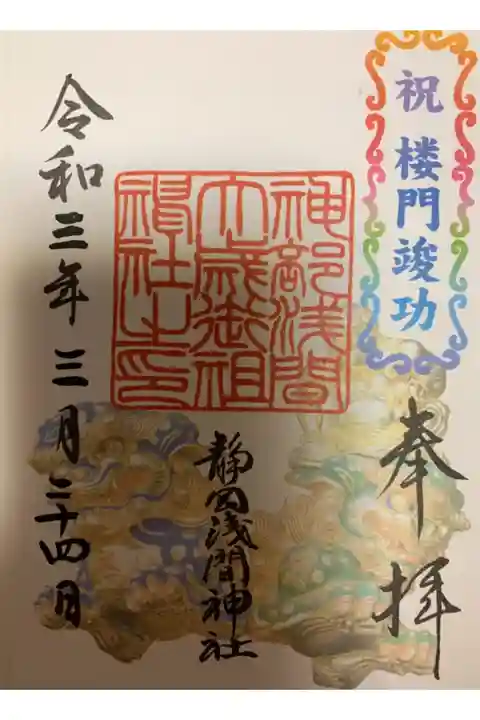 祝 楼門竣功
奉拝
神部浅間
大歳御祖
神社之印
静岡浅間神社
令和三年三月二十四日